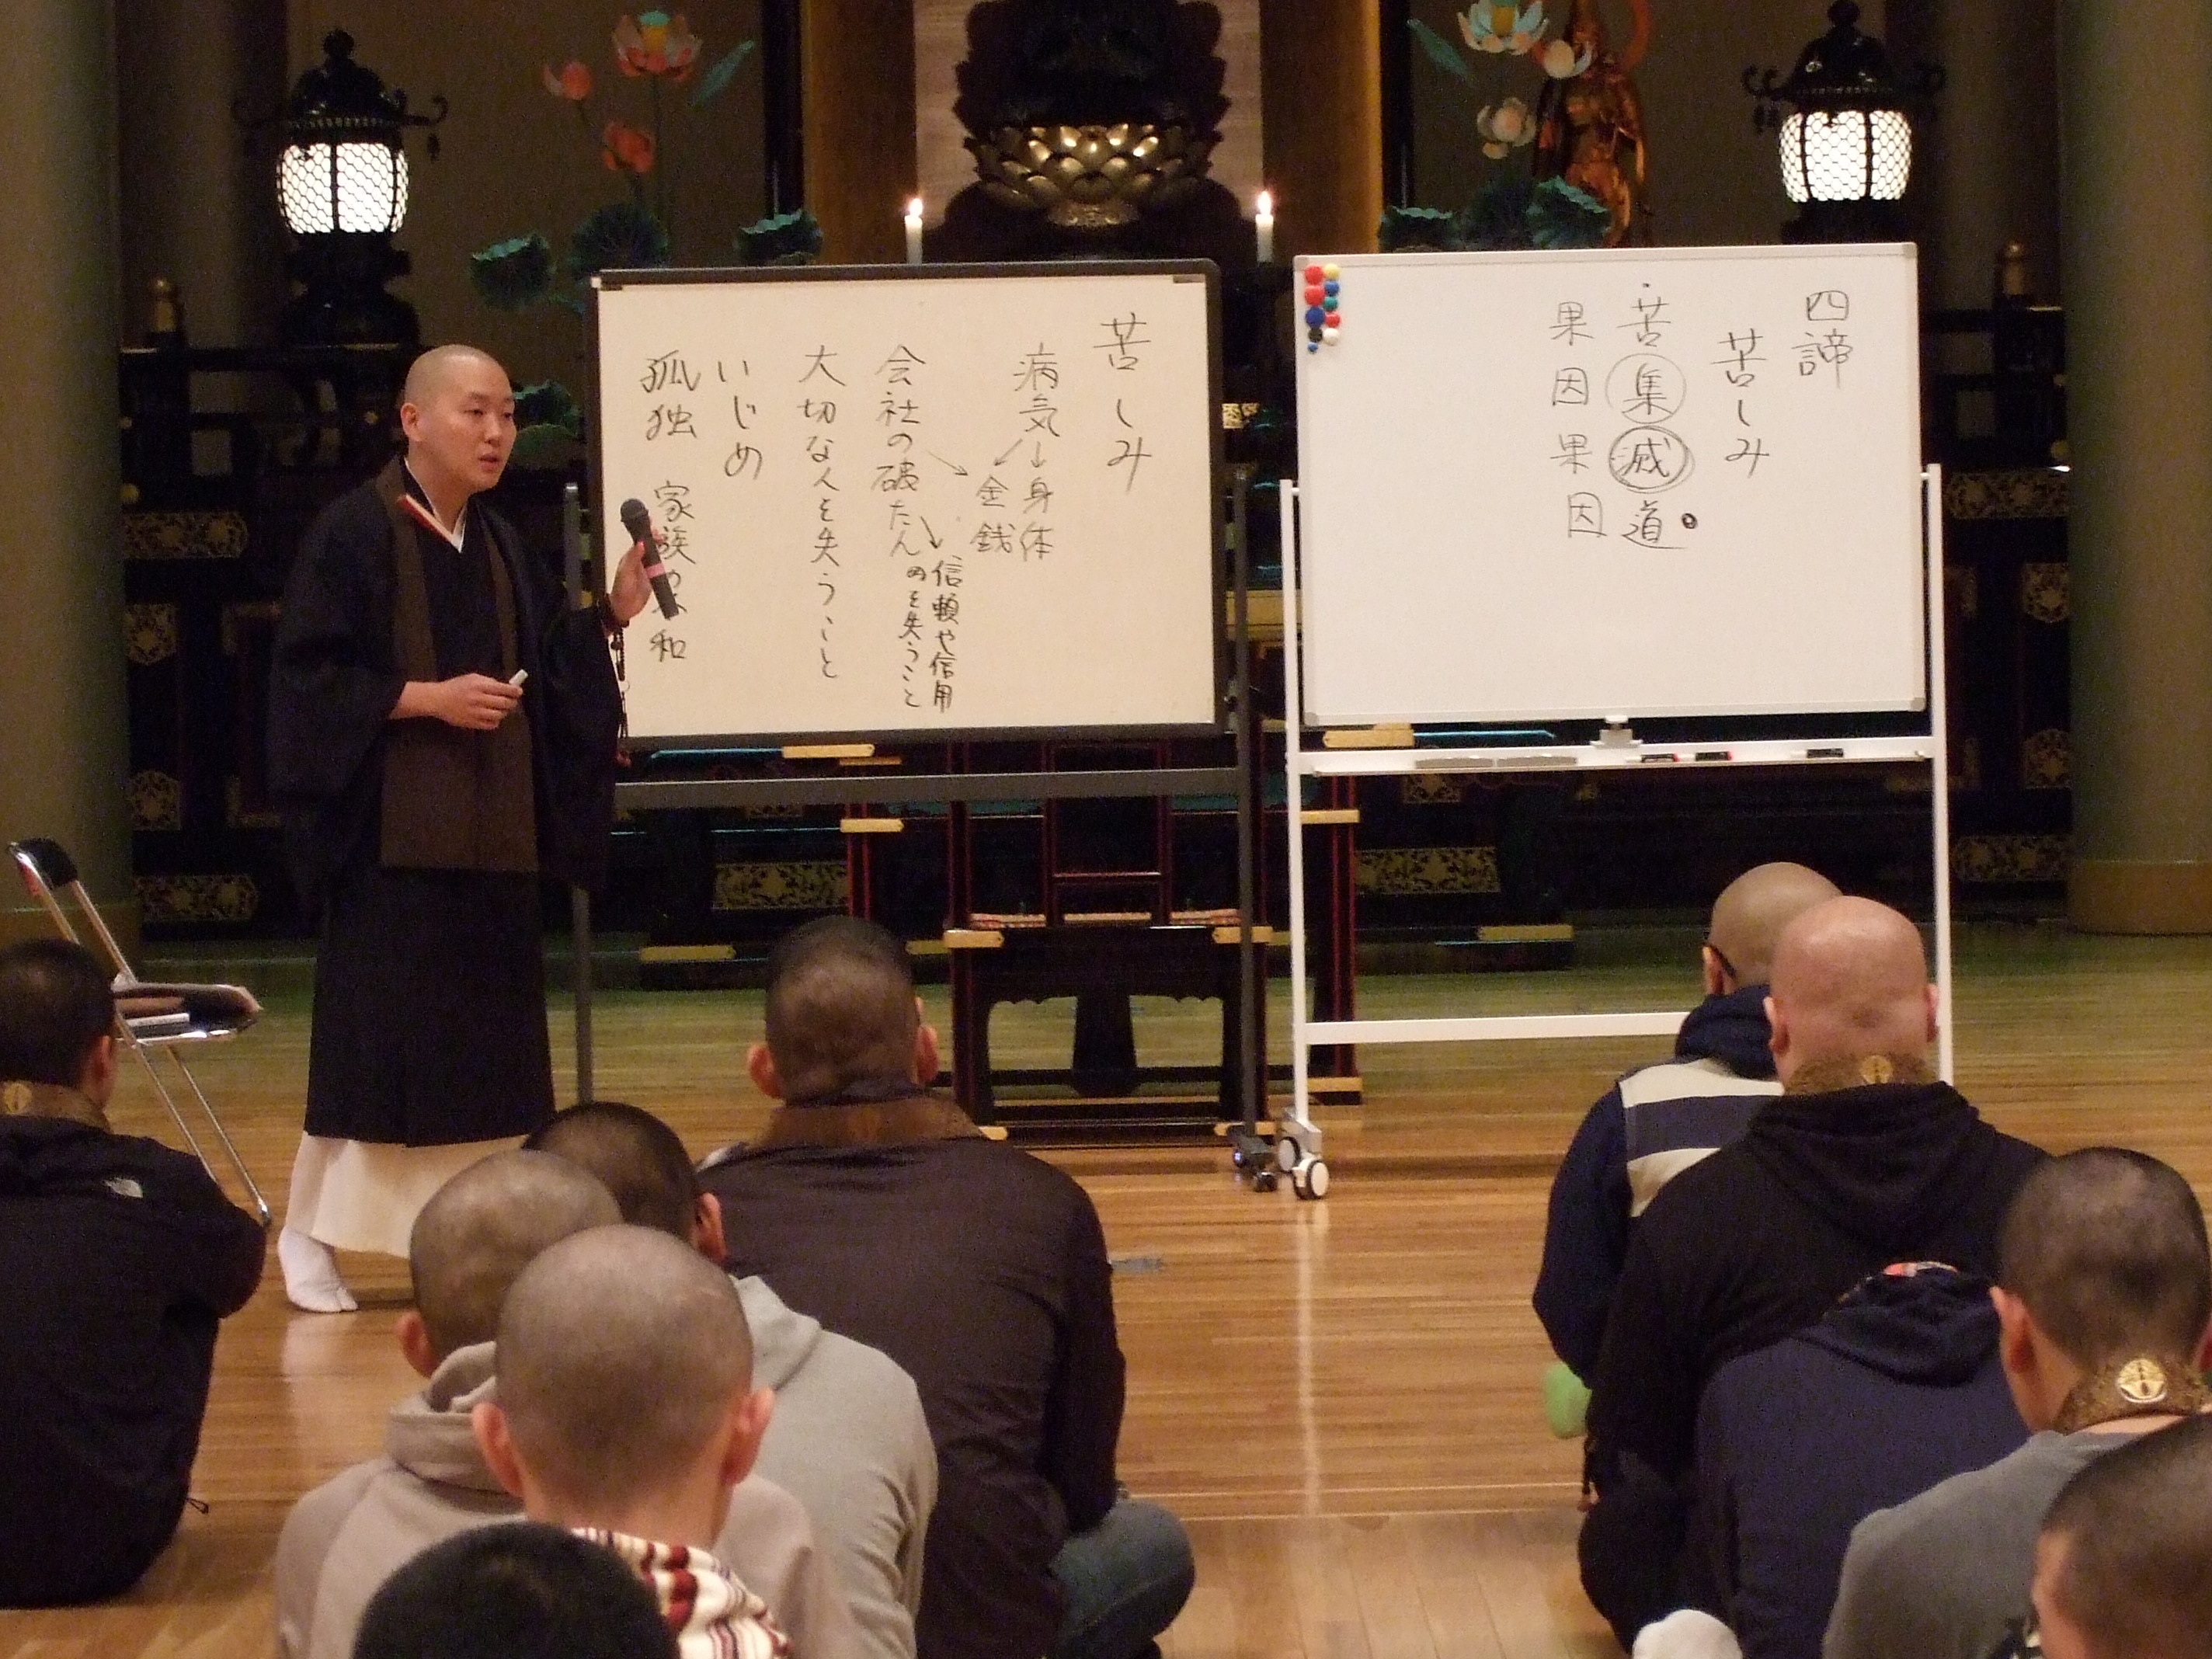 苦しみ
病気→身体
金銭
会社の破たん
信頼や信用
のを失うこと
大切な人を失うこと
いじめ
孤独 家族や
和
四諦
苦しみ
苦集滅道
果因果因